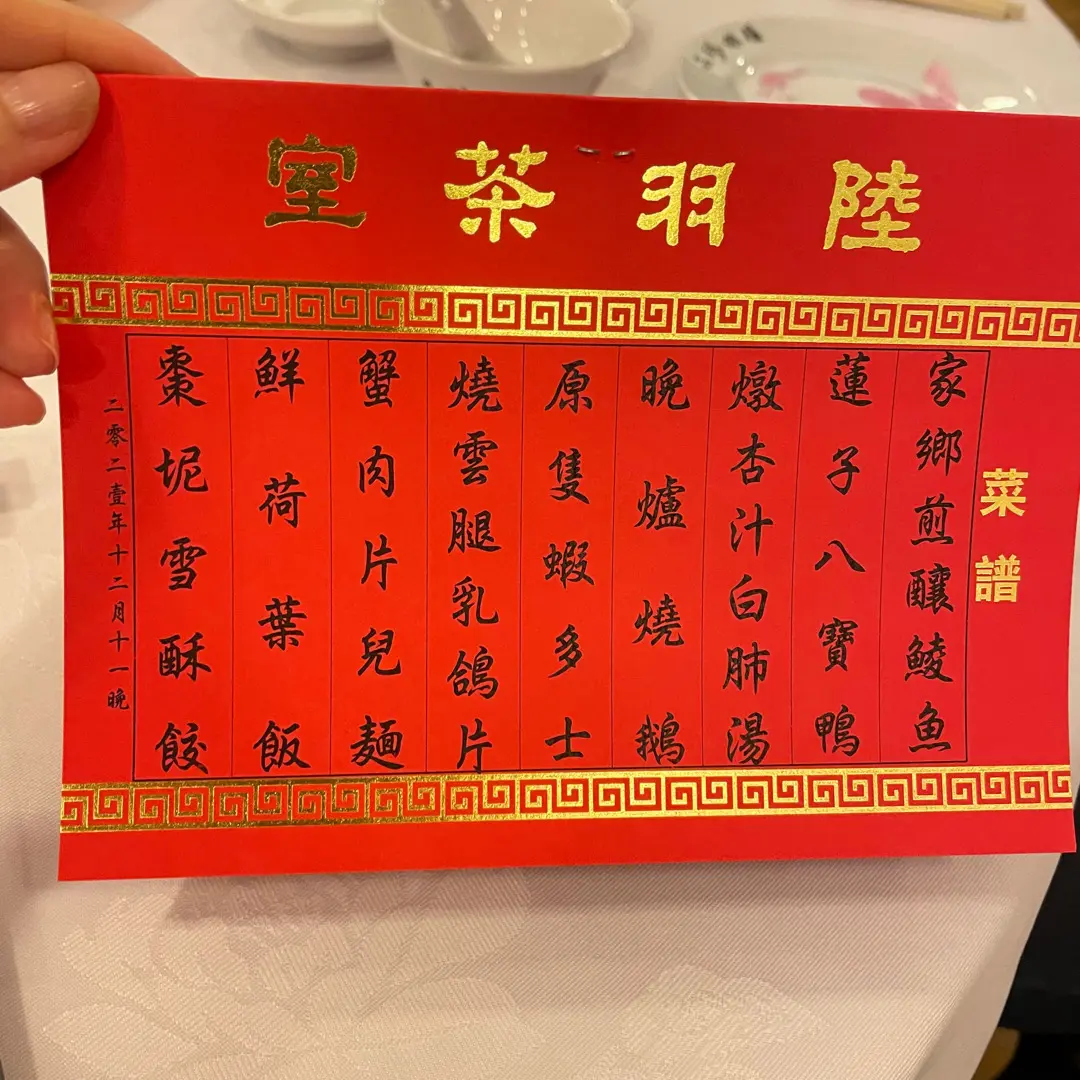 陸羽茶室
菜譜
家鄉煎釀鯪魚
蓮子八寶鴨
燉杏汁白肺湯
晚爐燒鵝
原隻蝦多士
燒雲腿乳鴿片
蟹肉片兒麵
鮮荷葉飯
棗坭雪酥餃
二零二壹年十二月十一晚